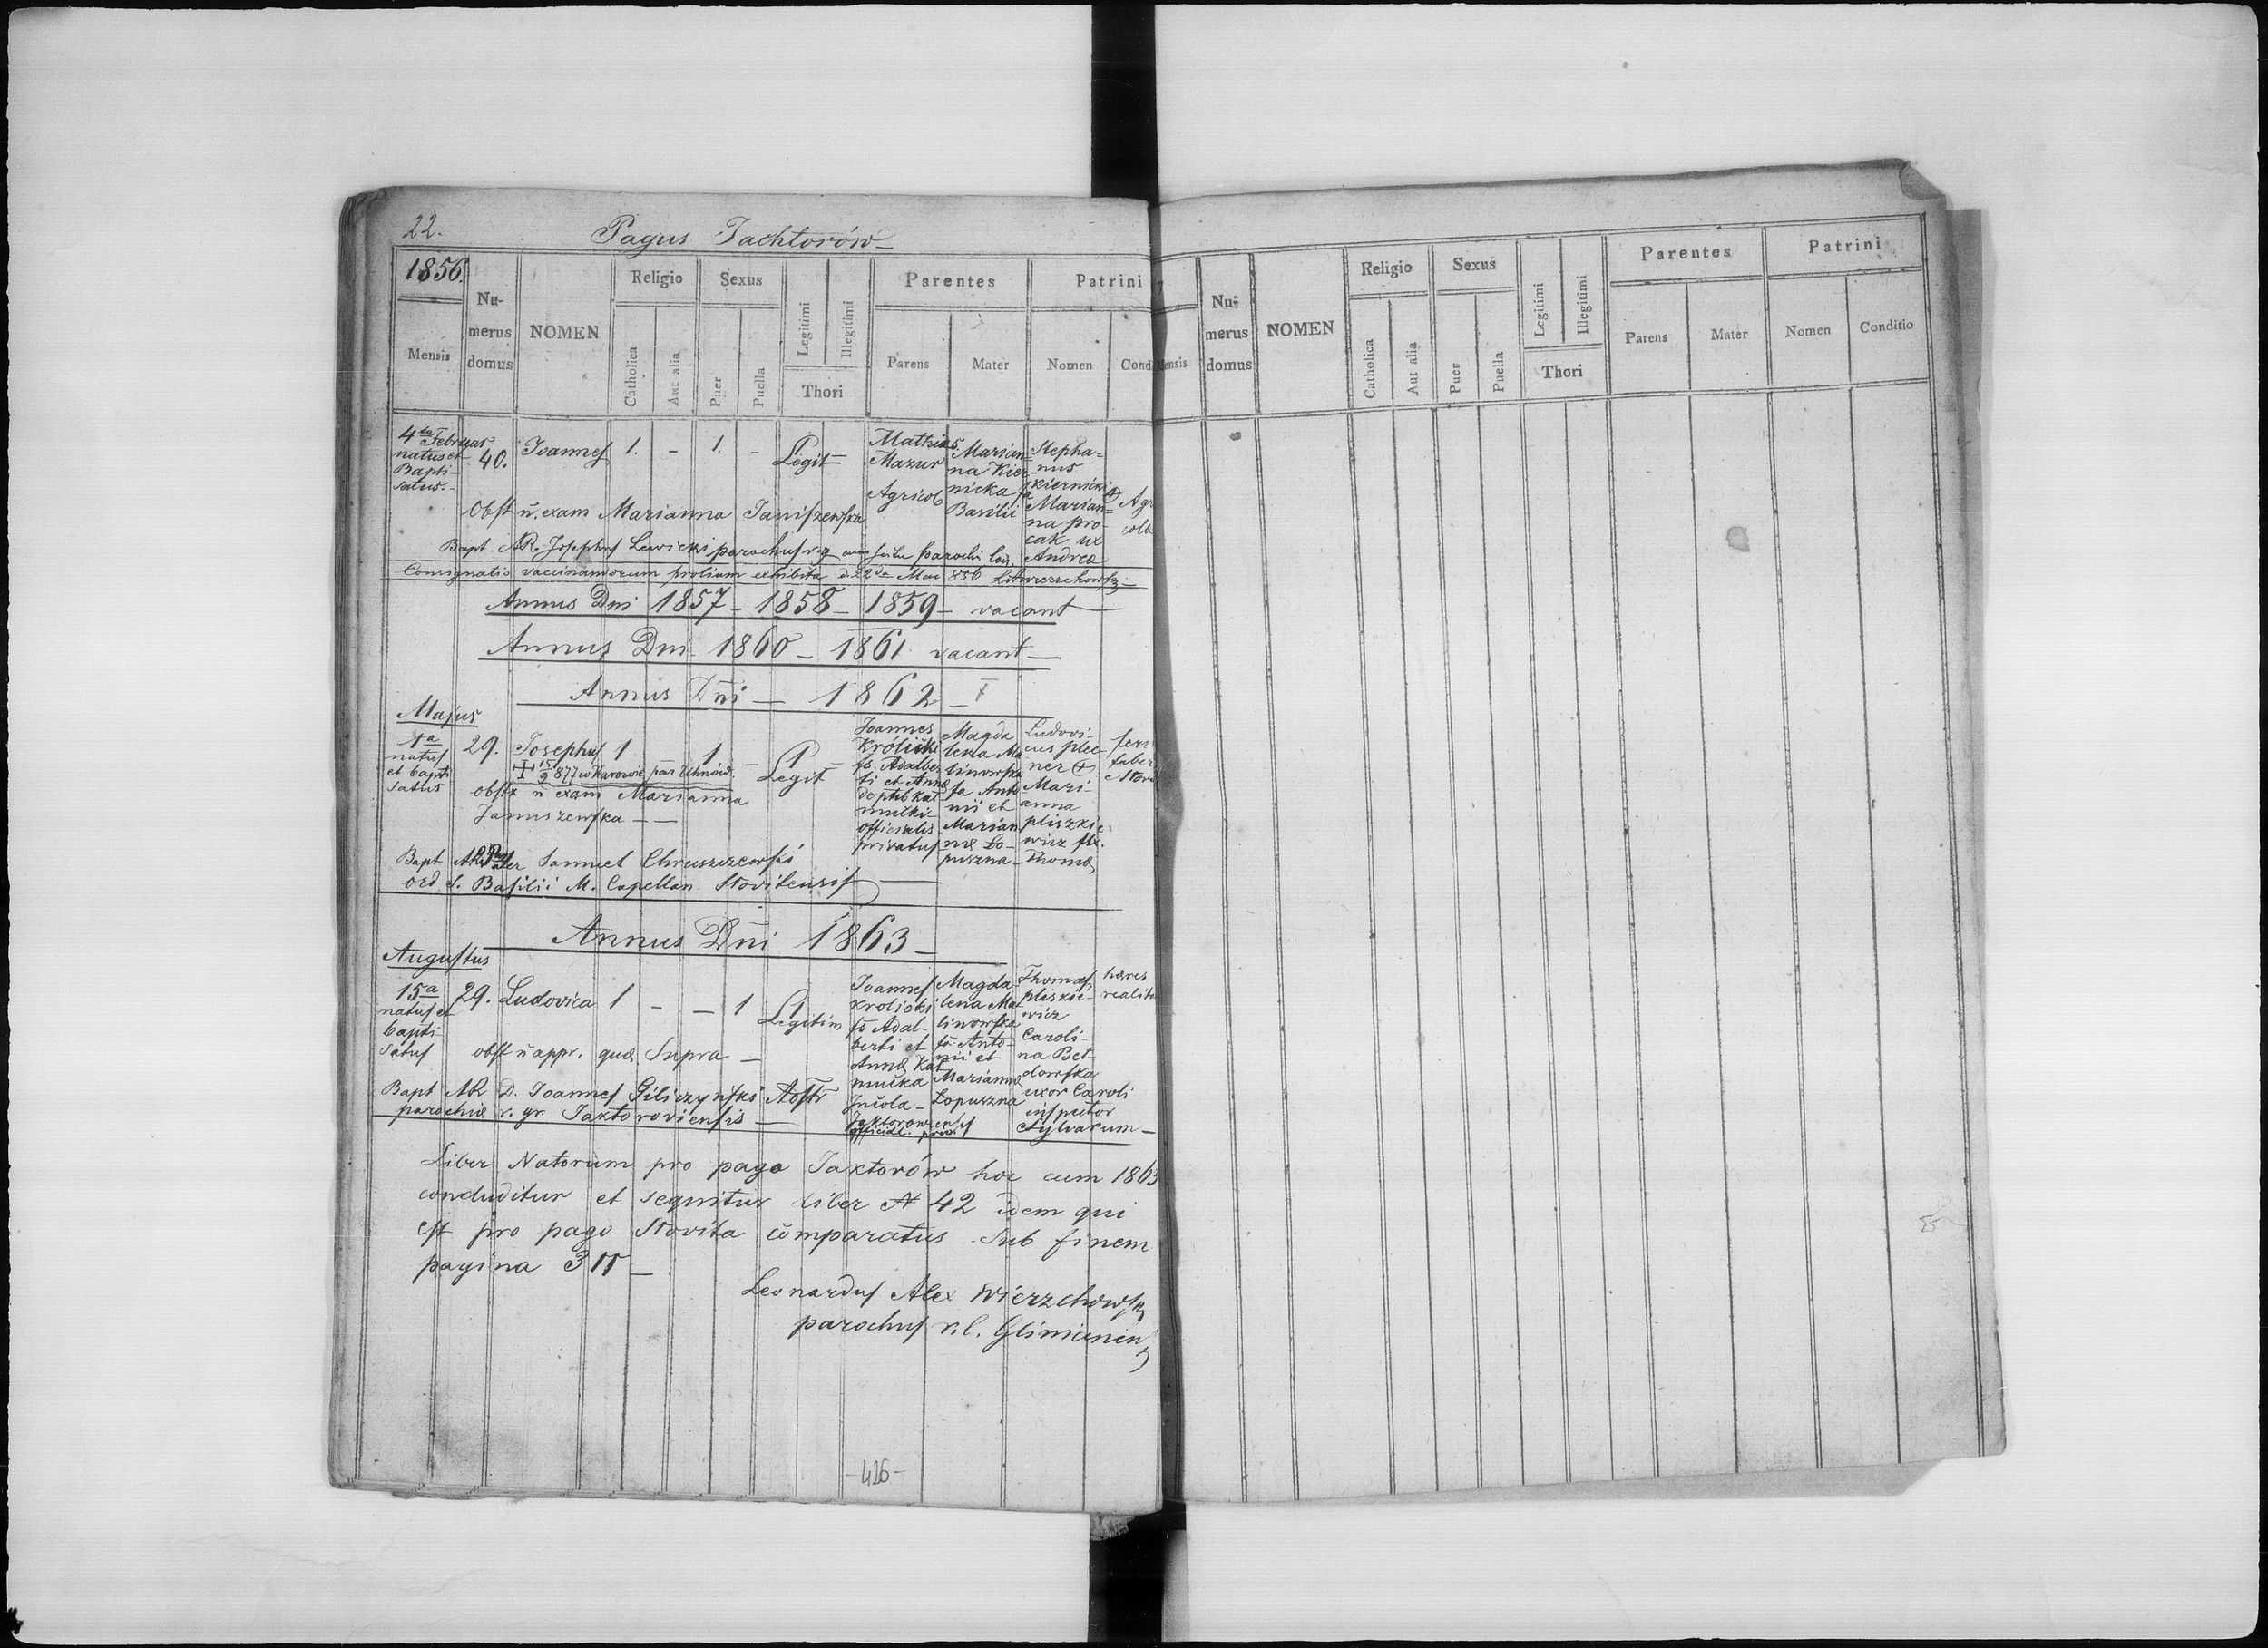 22. Pagus Jachtorów
1856.
Mensis
Nu-
merus
domus
NOMEN
Religio
Catholica
Aut alia
Sexus
Puer
Puella
Legitimi
Illegitimi
Thori
Parentes
Parens
Mater
Patrini
Nomen
Cond
4ta Februar
natus et
Bapti-
satus.
40.
Joannes
1. - 1. -
Legit
Mathias
Mazur
Agricol
Marian=
na Kier-
nicka fa
Basilii
Stepha=
nus
Kiernicki
Marian=
na pro-
cak ux
Andreæ
Agri
cola
Obst n. exam Marianna Janiszewska
Bapt. AR. Josephus Lewicki parochus r. g. cum parochi
Consignatio vaccinandorum prolium exhibita d. 22da Mai 856
Annus Dni 1857 - 1858 - 1859 - vacant
Annus Dni 1860 - 1861 vacant
Annus Dni - 1862 -
Majus
1a
natus
et bapti
satus
29.
Josephus
1 1
1
Legit
877 w Karowie par Uhnów
obstx n exam Marianna
Januszewska
Joannes
Królicki
fs. Adalber
ti et Annæ
officialis
privatus
Magda
lena Ma
linowska
fa Anto
nii et
Marian
næ Ło-
puszna
Ludovi-
cus
Mari-
anna
pliszkie
wicz
Thomæ
Bapt AR Pater Samuel Chruszczewski
Ord S. Basilii M. Capellan Slovitensis
Annus Dni 1863
Augustus
15a
natus et
bapti-
satus
29.
Ludovica
1 - - 1
1
Legitim
Joannes
Krolicki
fs Adal-
berti et
Annæ Kat
nucka
Incola
Jaktoroviens
official. priv.
Magda
lena Ma
linowska
fa Anto-
nii et
Mariannæ
Łopuszna
Thomas
pliskie-
wicz
Caroli-
na Bet-
dowska
uxor Caroli
inspector
Sylvarum
hæres
realit
obst n appr. quæ Supra
Bapt AR D. Joannes Giliczynski Adstr
parochiæ r. gr. Jaktoroviensis
Liber Natorum pro pago Jaktorów hoc cum 1863
concluditur et sequitur liber N 42 idem qui
est pro pago Slovita comparatus. Sub finem
pagina
Leonardus Alex Wierzchowski
parochus r. l. Glinianen
-426-
Mensis
Nu-
merus
domus
NOMEN
Religio
Catholica
Aut alia
Sexus
Puer
Puella
Legitimi
Illegitimi
Thori
Parentes
Parens
Mater
Patrini
Nomen
Conditio